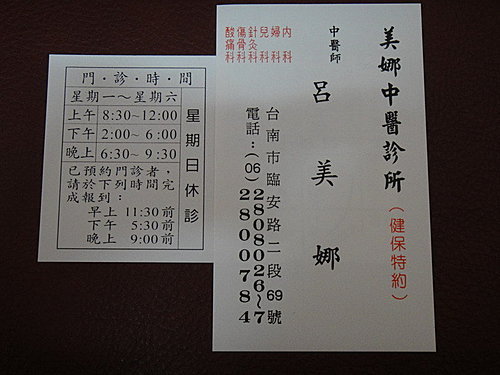 門・診・時・間
星期一～星期六
上午 8:30~12:00
下午 2:00~ 6:00
晚上 6:30~ 9:30
星期日休診
已預約門診者，
請於下列時間完
成報到：
早上 11:30前
下午 5:30前
晚上 9:00前
美娜中醫診所
（健保特約）
中醫師
呂美娜
內科
婦科
兒科
針灸科
傷骨科
酸痛科
台南市臨安路二段69號
電話：(06)2808026~7
2800784